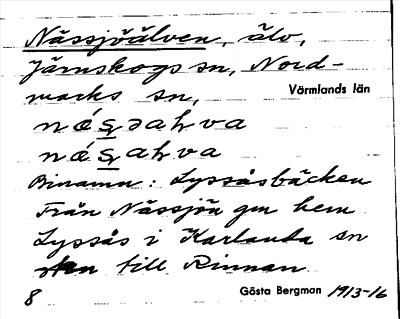 Nässjöälven, älv,
Järnskogs sn, Nord-
marks sn,
Värmlands län
Binamn: Lyssåsbäcken
Från Nässjön gm hem
Lyssås i Karlanda sn
till Rinnan
8
Gösta Bergman 1913-16